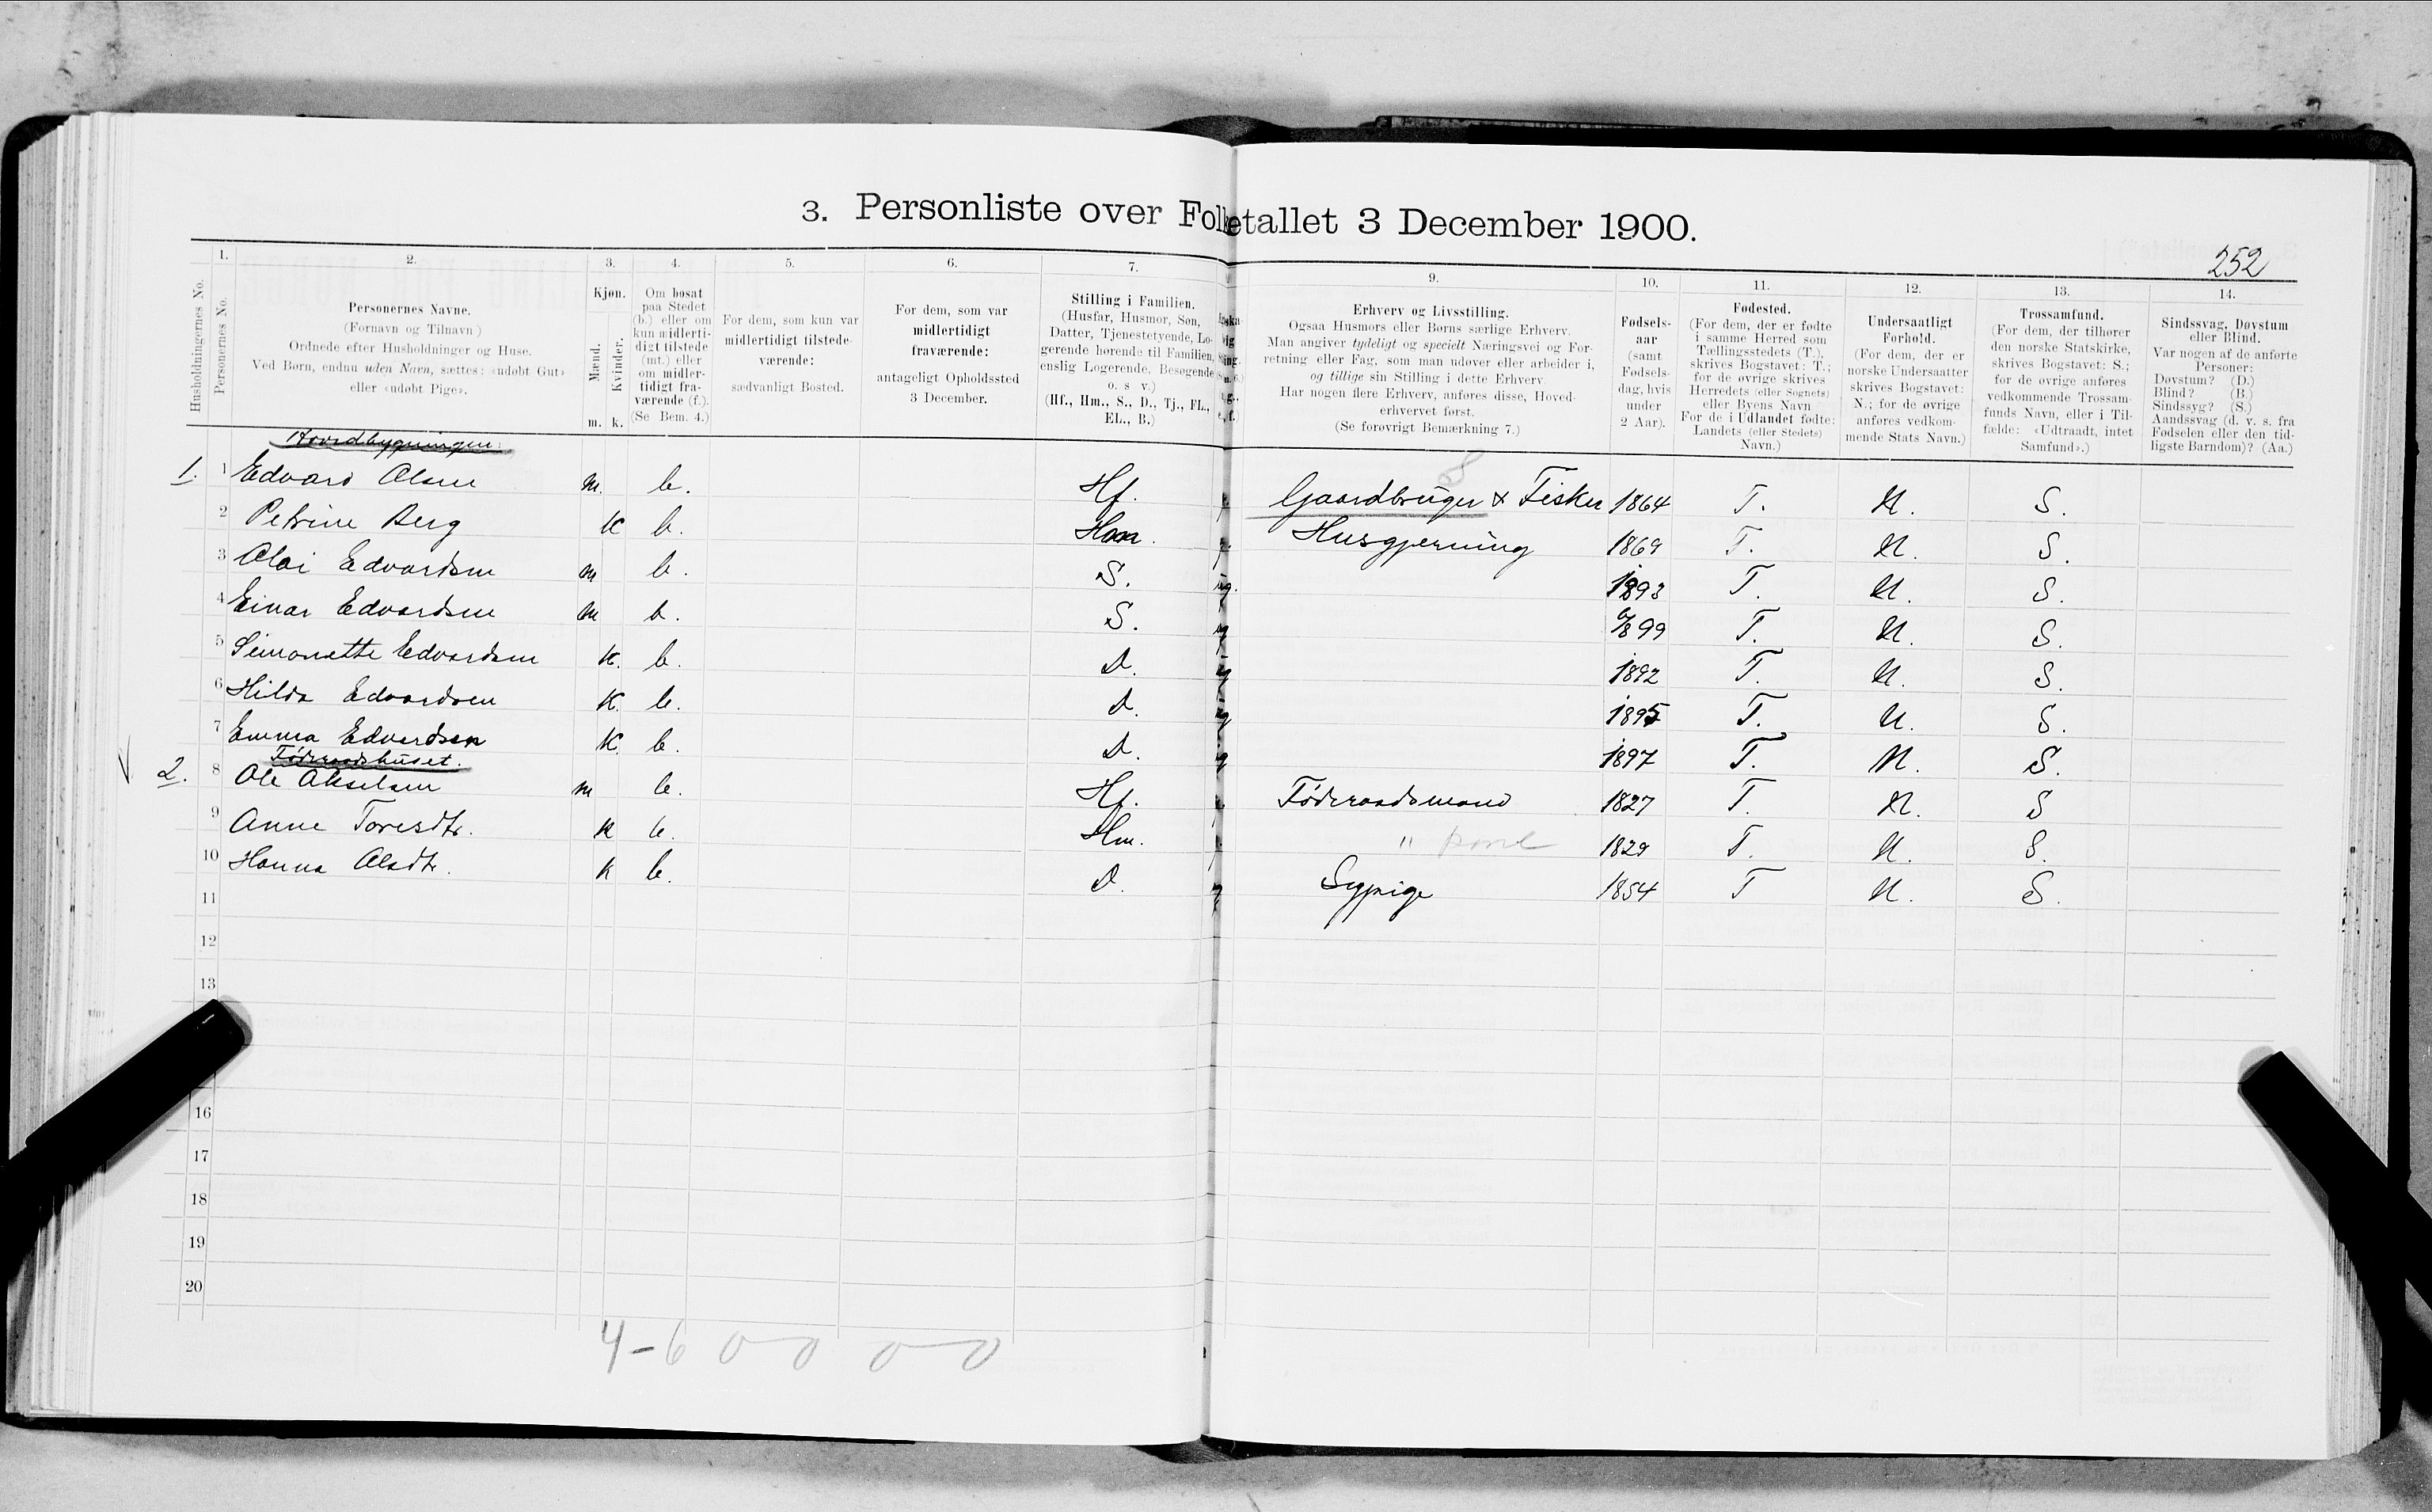 3. Personliste over Folketallet 3 December 1900.
252
1. 2. 3. 4. 5. 6. 7. 9. 10. 11. 12. 13. 14.
Husholdningernes No.
Personernes No.
Personernes Navne.
(Fornavn og Tilnavn)
Ordnede efter Husholdninger og Huse.
Ved Børn, endnu uden Navn, sættes: «udøbt Gut»
eller «udøbt Pige».
Kjøn.
Mænd.
Kvinder.
m. k.
Om bosat
paa Stedet
(b.) eller om
kun midlerti-
digt tilstede
(mt.) eller
om midler-
tidigt fra-
værende (f.).
(Se Bem. 4.)
For dem, som kun var
midlertidigt tilstede-
værende:
sædvanligt Bosted.
For dem, som var
midlertidigt
fraværende:
antageligt Opholdssted
3 December.
Stilling i Familien.
(Husfar, Husmor, Søn,
Datter, Tjenestetyende, Lo-
gerende hørende til Familien,
enslig Logerende, Besøgende
o. s v.)
(Hf., Hm., S., D., Tj., FL.,
EL., B.)
Erhverv og Livsstilling.
Ogsaa Husmors eller Børns særlige Erhverv.
Man angiver tydeligt og specielt Næringsvei og For-
retning eller Fag, som man udøver eller arbeider i,
og tillige sin Stilling i dette Erhverv.
Har nogen flere Erhverv, anføres disse, Hoved-
erhvervet først.
(Se forøvrigt Bemærkning 7.)
Fødsels-
aar
(samt
Fødsels-
dag, hvis
under
2 Aar).
Fødested.
(For dem, der er fødte
i samme Herred som
Tællingsstedets (T.),
skrives Bogstavet: T.;
for de øvrige skrives
Herredets (eller Sognets)
eller Byens Navn
For de i Udlandet fødte:
Landets (eller Stedets)
Navn.)
Undersaatligt
Forhold.
(For dem, der er
norske Undersaatter
skrives Bogstavet:
N.; for de øvrige
anføres vedkom-
mende Stats Navn.)
Trossamfund.
(For dem, der tilhører
den norske Statskirke,
skrives Bogstavet: S.;
for de øvrige anføres
vedkommende Trossam-
funds Navn, eller i Til-
fælde: «Udtraadt, intet
Samfund».)
Sindssvag, Døvstum
eller Blind.
Var nogen af de anførte
Personer:
Døvstum? (D.)
Blind? (B.)
Sindssyg? (S.)
Aandssvag (d. v. s. fra
Fødselen eller den tid-
ligste Barndom)? (Aa.)
Hovedbygningen.
8
1. 1 Edvard Olsen m. b. Hf. Gaardbruger & Fisker 1864 T. N. S.
2 Petrine Berg K b. Hm. Husgjerning 1869 T. N. S.
3 Olai Edvardsen m b. S. ug. 1893 T. N. S.
4 Einar Edvardsen m b. S. ug 99 T. N. S.
5 Simonette Edvardsen K. b. D. ug 1892 T. N. S.
6 Hilda Edvardsen K. b. D. ug 1895 T. N. S.
7 Emma Edvardsen K. b. D. ug 1897 T. N. S.
Føderaadshuset.
2. 8 Ole Akselsen m b. Hf. Føderaadsmand 1827 T. N. S
9 Anne Toresdtr. K b. Hm. " kone 1829 T. N. S.
10 Hanna Olsdtr. K b. D. Sypige 1854 T N. S.
11
12
13
16
17
18
19
20
4-6 0 0 0 0